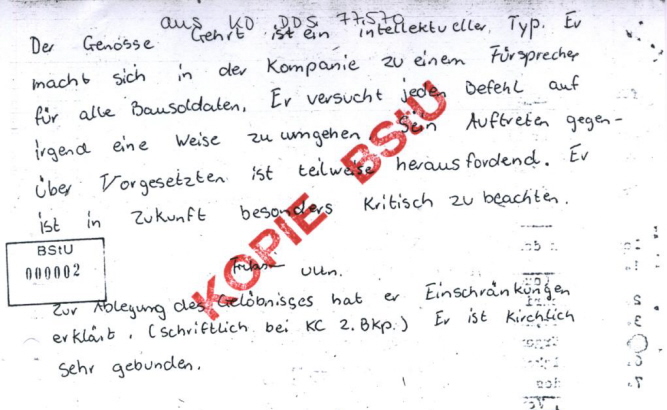 aus KD DDS 77.570
Der Genosse Gehrt ist ein intellektueller Typ. Er
macht sich in der Kompanie zu einem Fürsprecher
für alle Bausoldaten. Er versucht jeden Befehl auf
irgend eine Weise zu umgehen. Sein Auftreten gegen-
über Vorgesetzten ist teilweise herausfordend. Er
ist in Zukunft besonders Kritisch zu beachten.
KOPIE BStU
BStU
000002
Zur Ablegung des Gelöbnisses hat er Einschränkungen
erklärt. (Schriftlich bei KC 2. Bkp.) Er ist Kirchlich
sehr gebunden.